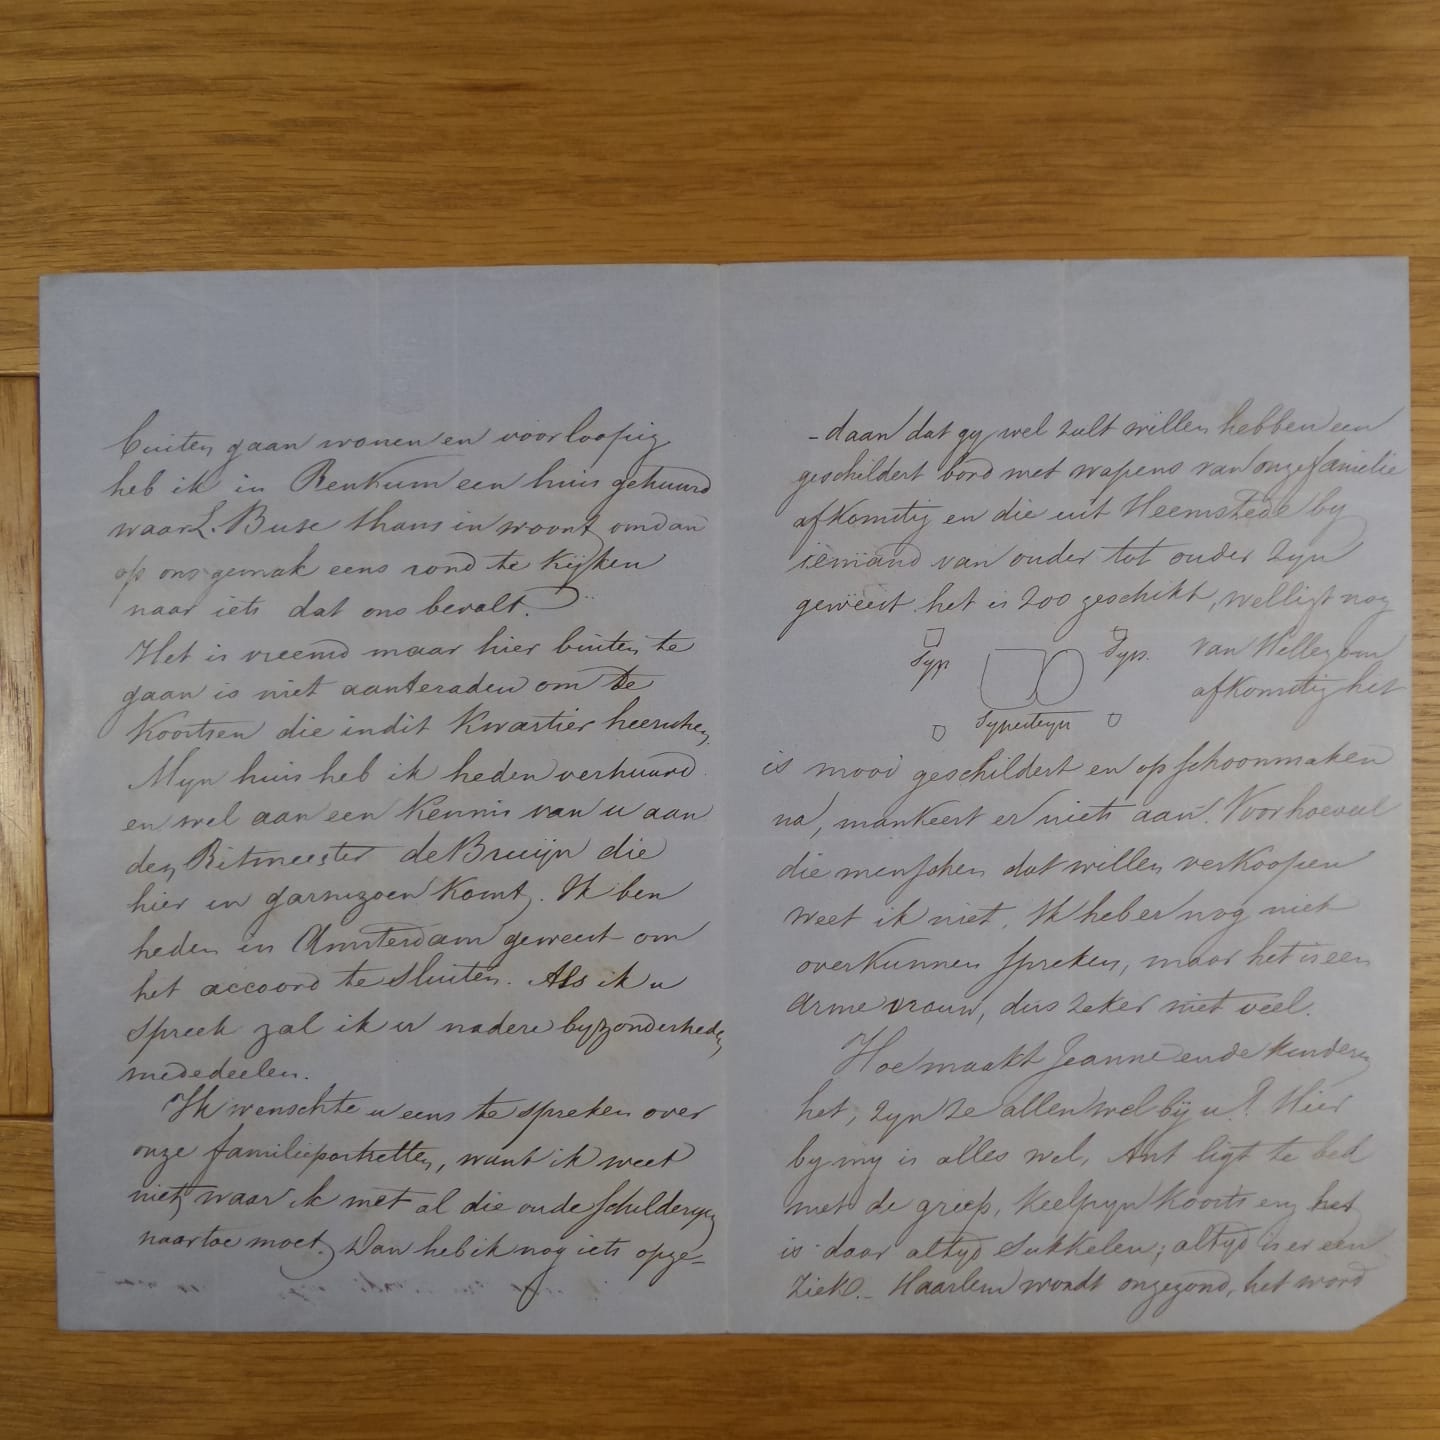 buiten gaan wonen en voorloopig
heb ik in Renkum een huis gehuurd
waar L. Buse thans in woont om dan
op ons gemak eens rond te kijken
naar iets dat ons bevalt.
Het is vreemd maar hier buiten te
gaan is niet aanteraden om de
Koortsen die in dit Kwartier heerschen.
Myn huis heb ik heden verhuurd
en wel aan een Kennis van u aan
den Ritmeester de Bruijn die
hier in garnizoen komt. Ik ben
heden in Amsterdam geweest om
het accoord te sluiten. Als ik u
spreek zal ik u nadere byzonderheden
mededeelen.
Ik wenschte u eens te spreken over
onze familieportretten, want ik weet
niet waar ik met al die oude schilderyen
naartoe moet. Dan heb ik nog iets opge-
-daan dat gy wel zult willen hebben een
geschildert bord met wapens van onze familie
afkomstig en die uit Heemstede by
iemand van ouder tot ouder zyn
geweest het is zoo geschikt, welligt nog
Typ. Typ. van Hillegom
afkomstig het
Typesteyn
is mooi geschildert en op schoonmaken
na, mankeert er niets aan. Voor hoeveel
die menschen dat willen verkoopen
weet ik niet. Ik heb er nog niet
over kunnen spreken, maar het is een
arme vrouw, dus zeker niet veel.
Hoe maakt Jeanne en de kinderen
het, zyn ze allen wel bij u? Hier
by my is alles wel, Ant ligt te bed
met de griep, keelpyn koorts en het
is daar altyd sukkelen; altyd is er een
ziek. - Haarlem wordt ongezond, het word